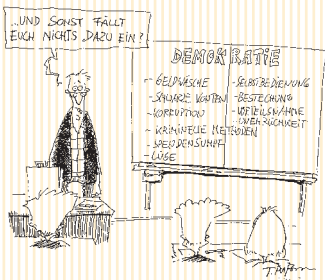 ...UND SONST FÄLLT
EUCH NICHTS DAZU EIN?
DEMOKRATIE
- GELDWÄSCHE
- SCHWARZE KONTEN
- KORRUPTION
- KRIMINELLE METHODEN
- SPENDENSUMPF
- LÜGE
- SELBSTBEDIENUNG
- BESTECHUNG
- VORTEILSNAHME
- UNEHRLICHKEIT